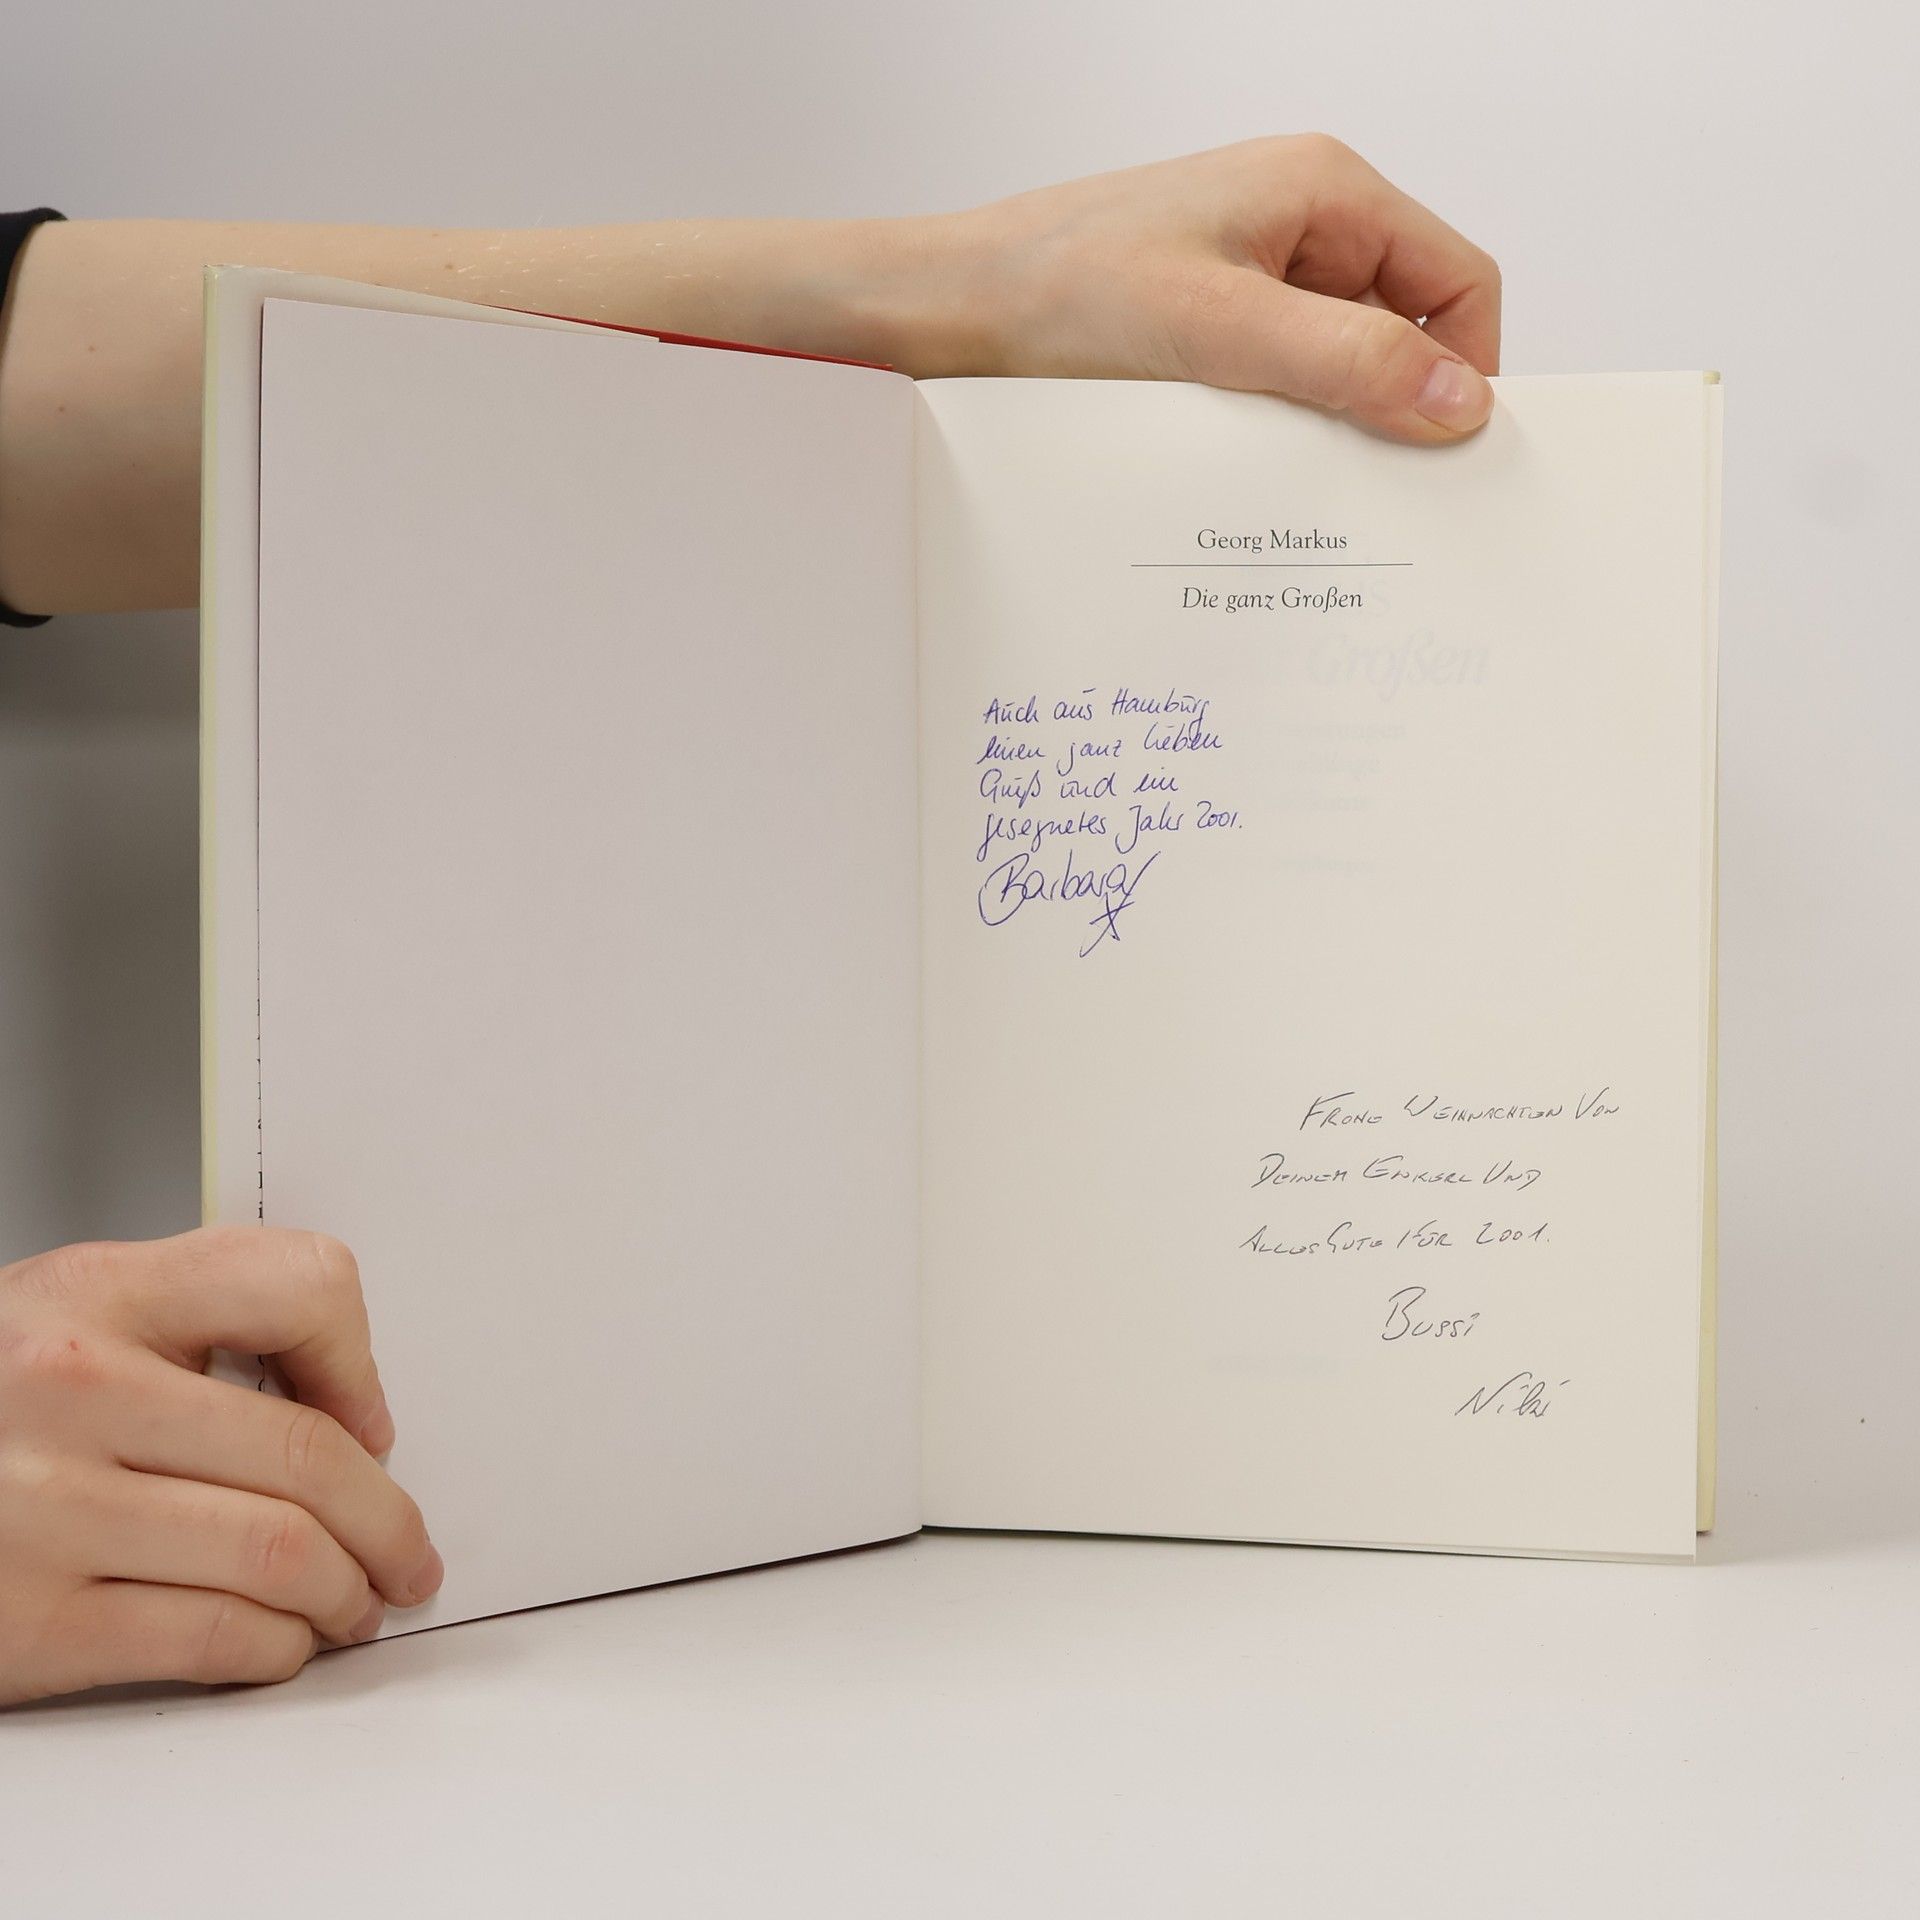 Georg Markus
Die ganz Großen
Großen
Auch aus Hamburg
einen ganz lieben
Gruß und ein
gesegnetes Jahr 2001.
Barbara
FROHE WEIHNACHTEN VON
DEINEM ENKERL UND
ALLES GUTE FÜR 2001.
BUSSI
Niki